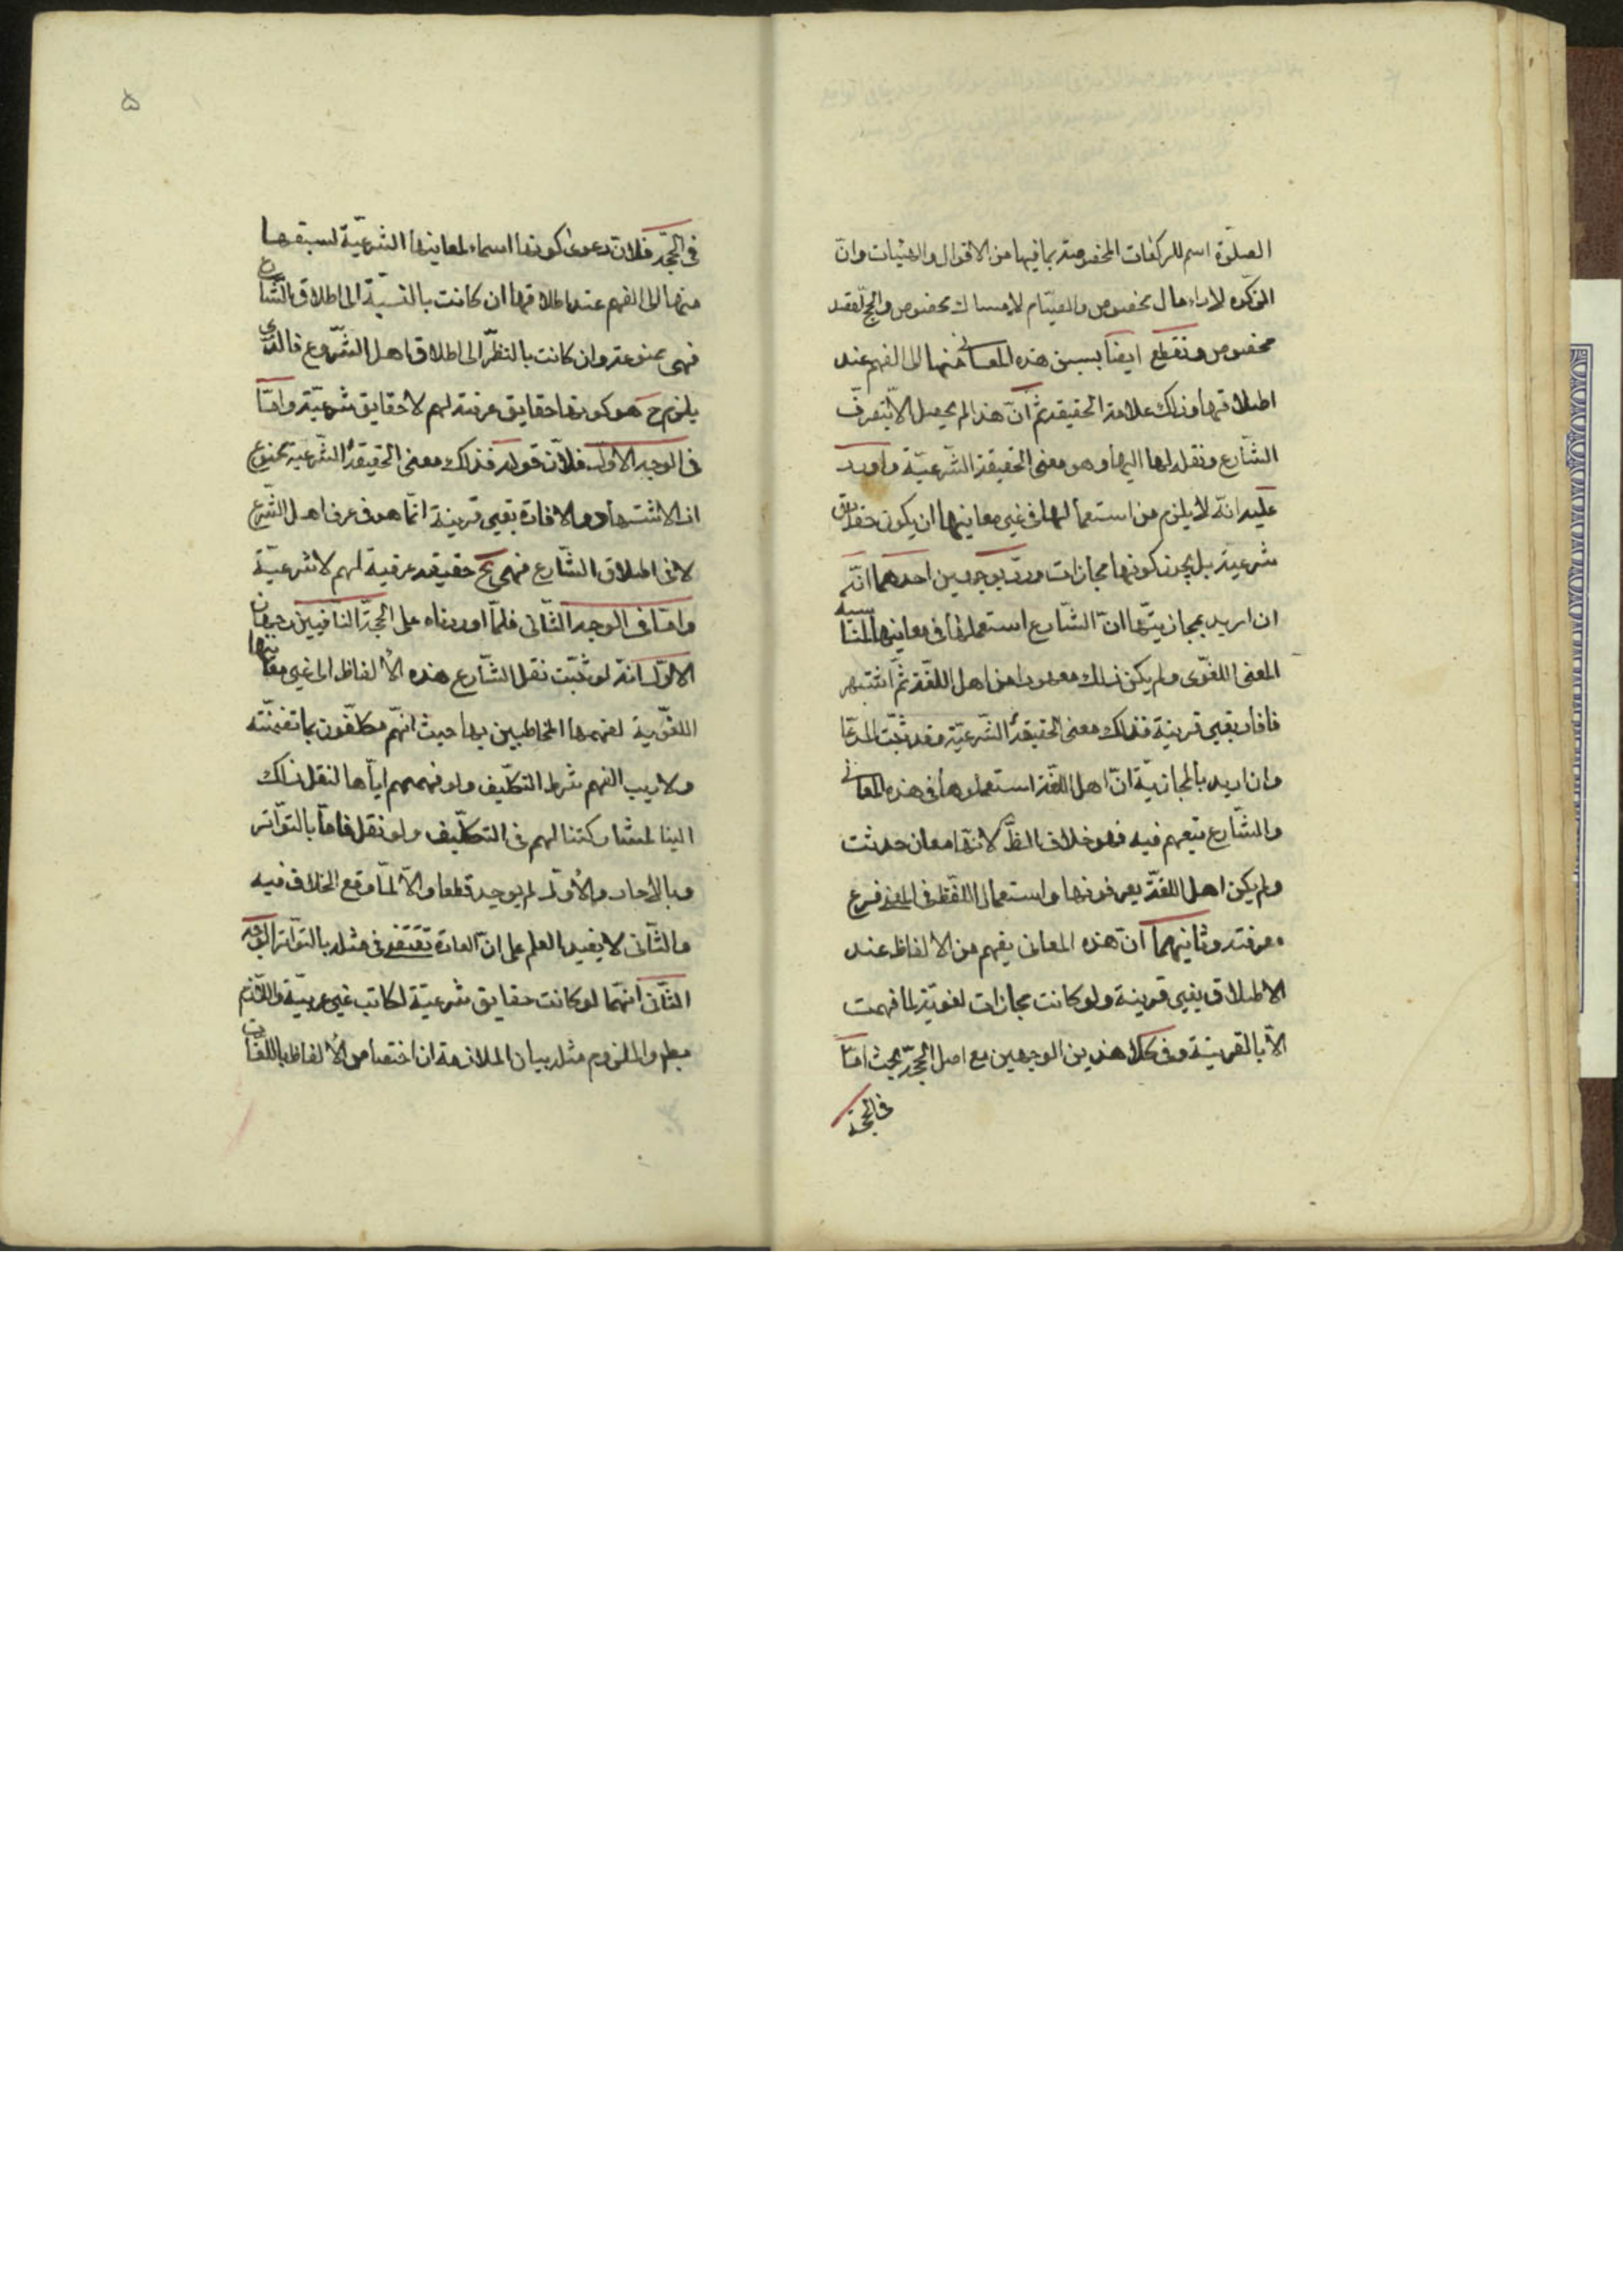 الصلوة اسم للركعات المخصوصة بما فيها من الاقوال والهيئات وانّ
الزكوة لاداء مال مخصوص والصيّام لامساك مخصوص والحجّ لقصد
مخصوص ونقطع ايضا بسبق هذه المعانى منها الى الفهم عند
اطلاقها وذلك علامة الحقيقة ثمّ انّ هذا لم يحصل الّا بتصرّف
الشّارع ونقله لها اليها وهو معنى الحقيقة الشّرعيّة واورد
عليه انّه لا يلزم من استعمالها فى غير معانيها ان يكون حقايق
شرعيّة بل يجوز كونها مجازات وردّ بوجهين احدهما انّه
ان اريد بمجازيتّها انّ الشّارع استعملها فى معانيها المناسبة
المعنى اللغّوى ولم يكن ذلك معهودا من اهل اللغّة ثمّ اشتهر
فافاد بغير قرينة فذلك معنى الحقيقة الشّرعيّة وقد ثبّت المدّعا
وان اريد بالمجازيّة انّ اهل اللغّة استعملوها فى هذه المعانى
والشّارع تبعهم فيه فهو خلاف الظّ لانّها معان حدثت
ولم يكن اهل اللغّة يعرفونها واستعمال اللّفظ فى المعنى فرع
معرفته وثانيهما انّ هذه المعانى يفهم من الالفاظ عند
الاطلاق بغير قرينة ولو كانت مجازات لغويّة لما فهمت
الّا بالقرينة وفى كلا هذين الوجهين مع اصل الحجّة بحث امّا
فى الحجّة
۵
فى الحجّة فلانّ دعوى كونها اسماء لمعانيها الشّرعيّة لسبقها
منها الى الفهم عند اطلاقها ان كانت بالنّسبّة الى اطلاق الشّارع
فهى ممنوعة وان كانت بالنّظر الى اطلاق اهل الشّروع فالذى
يلزم ح هو كونها حقايق عرفية لهم لا حقايق شرعيّة وامّا
فى الوجه الاول فلانّ قوله فذلك معنى الحقيقة الشّرعية ممنوع
اذ الاشتهار والافادة بغير قرينة انّما هو فى عرف اهل الشّرع
لا فى اطلاق الشّارع فهى ح حقيقة عرفية لهم لا شرعيّة
وامّا فى الوجه الثّانى فلمّا اوردناه على الحجّة النّافيين وجهان
الاوّل انّه لو ثبّت نقل الشّارع هذه الالفاظ الى غير معانيها
اللغّوية لفهمها المخاطبين بها حيث انّهم مكلّفون بما تضمّنته
ولا ريب الفهم شرط التكلّيف ولو فهمهم ايّاها لنقل ذلك
الينا لمشاركتنا لهم فى التكلّيف ولو نقل فامّا بالتّواتر
وبالاحاد والاوّل لم يوجد قطعا والّا لمّا وقع الخلاف فيه
والثّانى لا يفيد العلم على انّ العادة تقتضى فى مثله بالتّواتر الوجه
الثّانى انّها لو كانت حقايق شرعيّة لكانت غير عربيّة واللّازم
بط والملزوم مثله بيان الملازمة ان اختصاص الالفاظ باللغّات